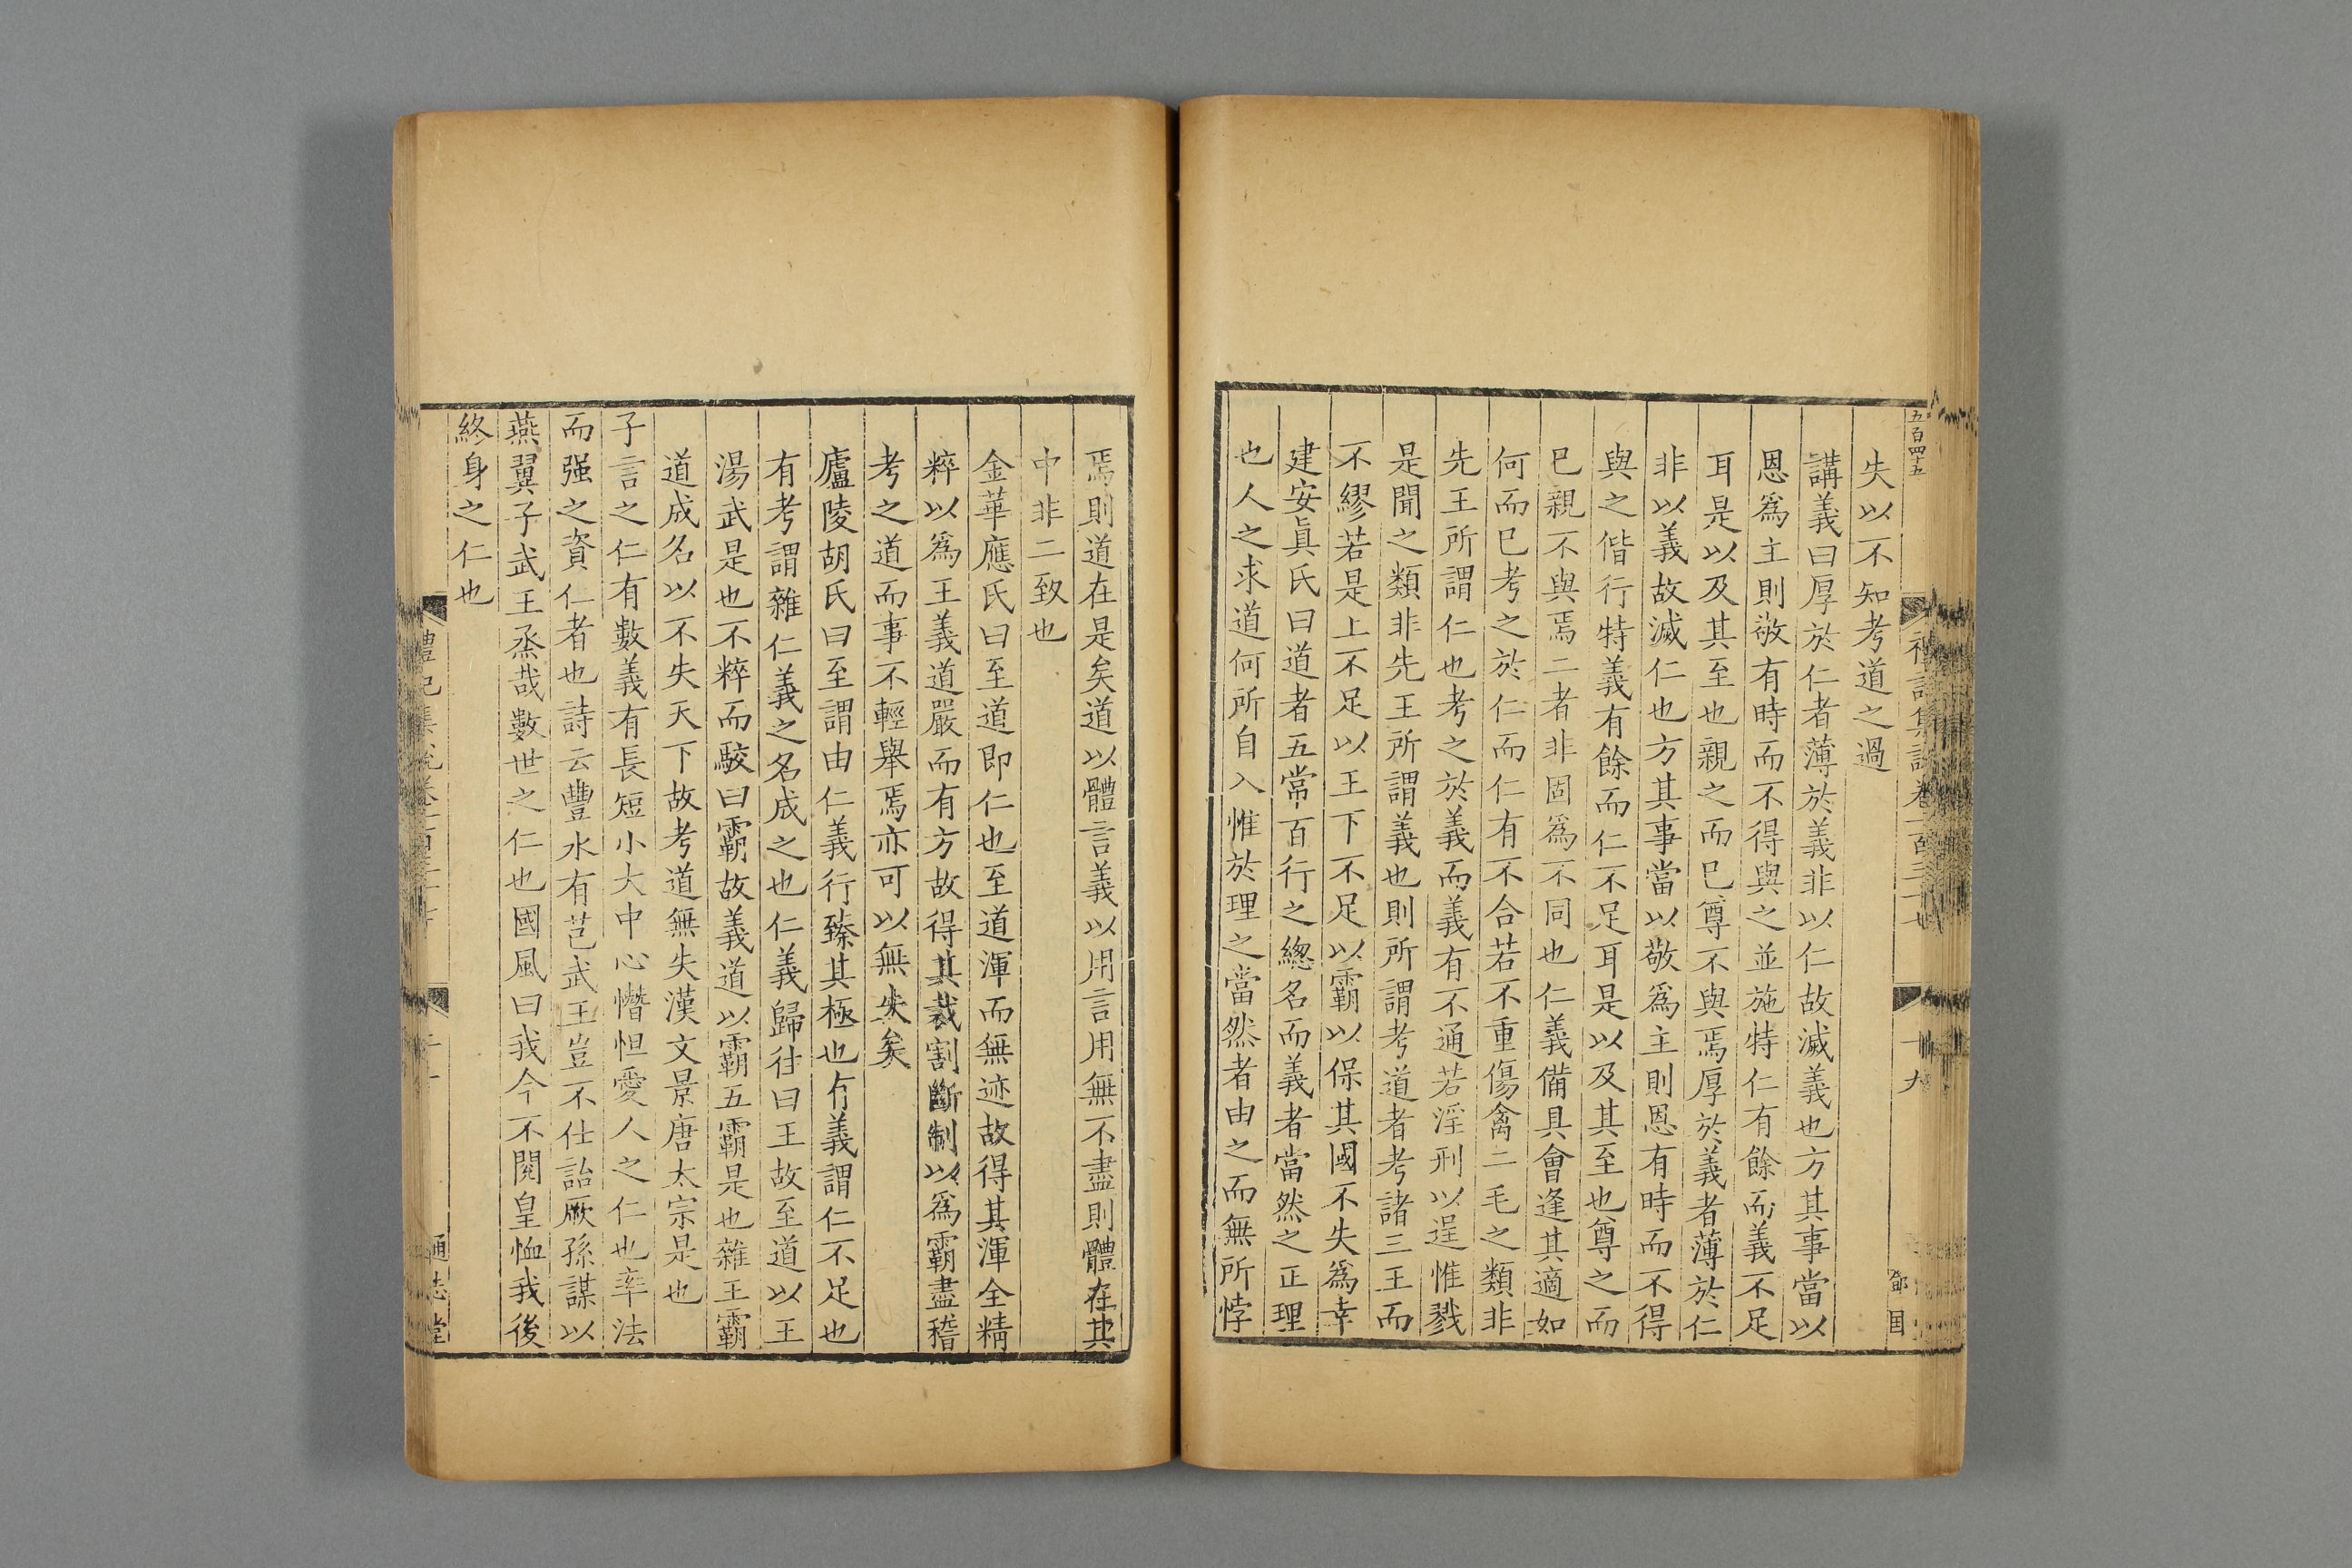 五百四十五
失以不知考道之過
講義曰厚於仁者薄於義非以仁故滅義也方其事當以
恩爲主則敬有時而不得與之並施特仁有餘而義不足
耳是以及其至也親之而巳尊不與焉厚於義者薄於仁
非以義故滅仁也方其事當以敬爲主則恩有時而不得
與之偕行特義有餘而仁不足耳是以及其至也尊之而
巳親不與焉二者非固爲不同也仁義備具會逢其適如
何而巳考之於仁而仁有不合若不重傷禽二毛之類非
先王所謂仁也考之於義而義有不通若淫刑以逞惟戮
是聞之類非先王所謂義也則所謂考道者考諸三王而
不繆若是上不足以王下不足以霸以保其國不失爲幸
建安眞氏曰道者五常百行之總名而義者當然之正理
也人之求道何所自入惟於理之當然者由之而無所悖
焉則道在是矣道以體言義以用言用無不盡則體在其
中非二致也
金華應氏曰至道即仁也至道渾而無迹故得其渾全精
粹以爲王義道嚴而有方故得其裁割斷制以爲霸盡稽
考之道而事不輕舉焉亦可以無失矣
廬陵胡氏曰至謂由仁義行臻其極也有義謂仁不足也
有考謂雜仁義之名成之也仁義歸往曰王故至道以王
湯武是也不粹而駮曰霸故義道以霸五霸是也雜王霸
道成名以不失天下故考道無失漢文景唐太宗是也
子言之仁有數義有長短小大中心憯怛愛人之仁也率法
而强之資仁者也詩云豐水有芑武王豈不仕詒厥孫謀以
燕翼子武王烝哉數世之仁也國風曰我今不閱皇恤我後
終身之仁也
禮記集說卷一百三十七
通志堂